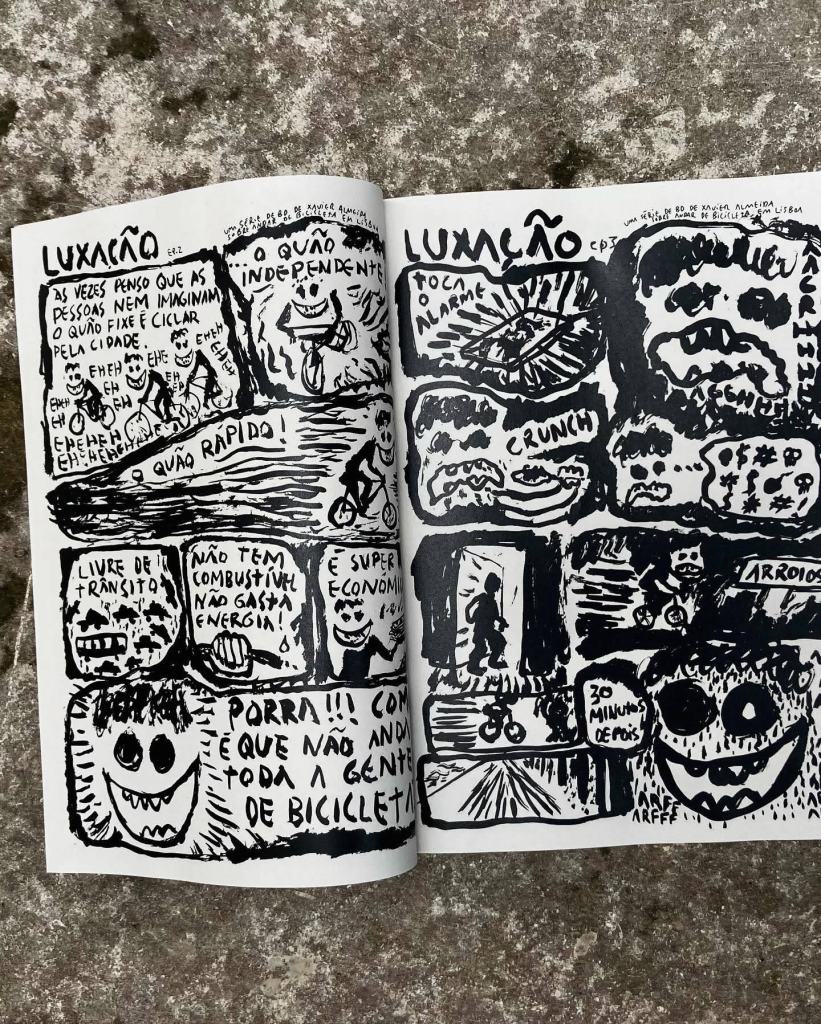 LUXAÇÃO EP.2
UMA SÉRIE DE BD DE XAVIER ALMEIDA
SOBRE ANDAR DE BICICLETA EM LISBOA
AS VEZES PENSO QUE AS
PESSOAS NEM IMAGINAM
O QUÃO FIXE É CICLAR
PELA CIDADE.
EHEH
EH
EHE
EH
EHEH
EHEH
EH
EHEHEH
EH!EHEHEH
O QUÃO
INDEPENDENTE
O QUÃO RÁPIDO!
LIVRE DE
TRÂNSITO
NÃO TEM
COMBUSTÍVEL
NÃO GASTA
ENERGIA!
É SUPER
ECONÓMI
PORRA!!! COM
É QUE NÃO ANDA
TODA A GENTE
DE BICICLETA
LUXAÇÃO EP3
UMA SÉRIE DE BD DE XAVIER ALMEIDA
SOBRE ANDAR DE BICICLETA EM LISBOA
TOCA
O
ALARME
CRUNCH
ARROIOS
30
MINUTOS
DEPOIS
ARFF
ARFFF